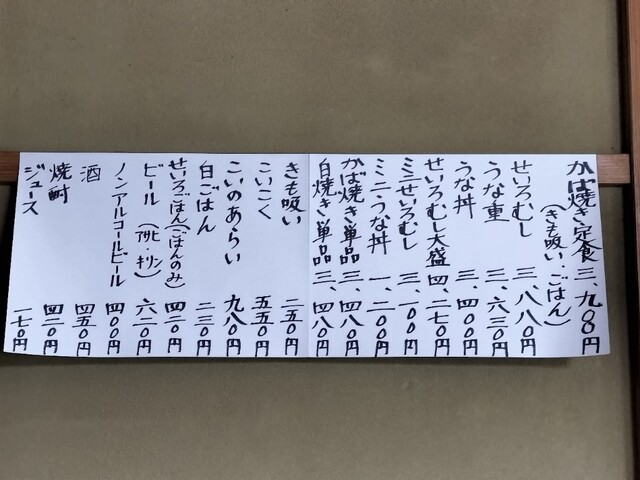 かば焼き定食 三、九〇〇円
(きも吸い・ごはん)
せいろむし 三、八八〇円
うな重 三、六三〇円
うな丼 三、四〇〇円
せいろむし大盛 四、二七〇円
ミニせいろむし 三、一〇〇円
ミニうな丼 一、二〇〇円
かば焼き単品 三、四八〇円
白焼き単品 三、四八〇円
きも吸い 二五〇円
こいこく 五五〇円
こいのあらい 九八〇円
白ごはん 二三〇円
せいろごはん(ごはんのみ) 四二〇円
ビール(アサヒ・キリン) 六二〇円
ノンアルコールビール 四〇〇円
酒 四五〇円
焼酎 四二〇円
ジュース 一七〇円